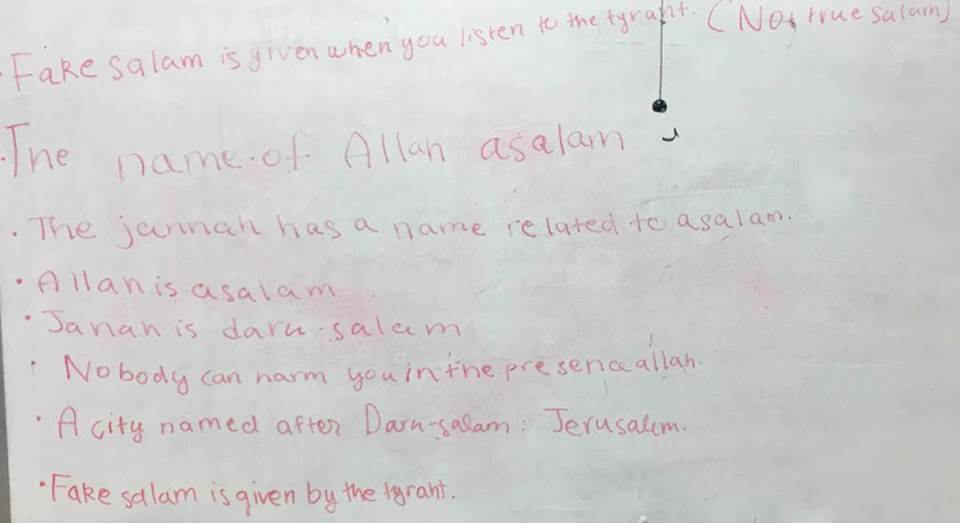 · Fake salam is given when you listen to the tyrant. (Not true salam)
· The name of Allah asalam
· The jannah has a name related to asalam.
· Allah is asalam
· Janah is daru-salam
· Nobody can harm you in the presence allah.
· A city named after Daru-salam: Jerusalem.
· Fake salam is given by the tyrant.